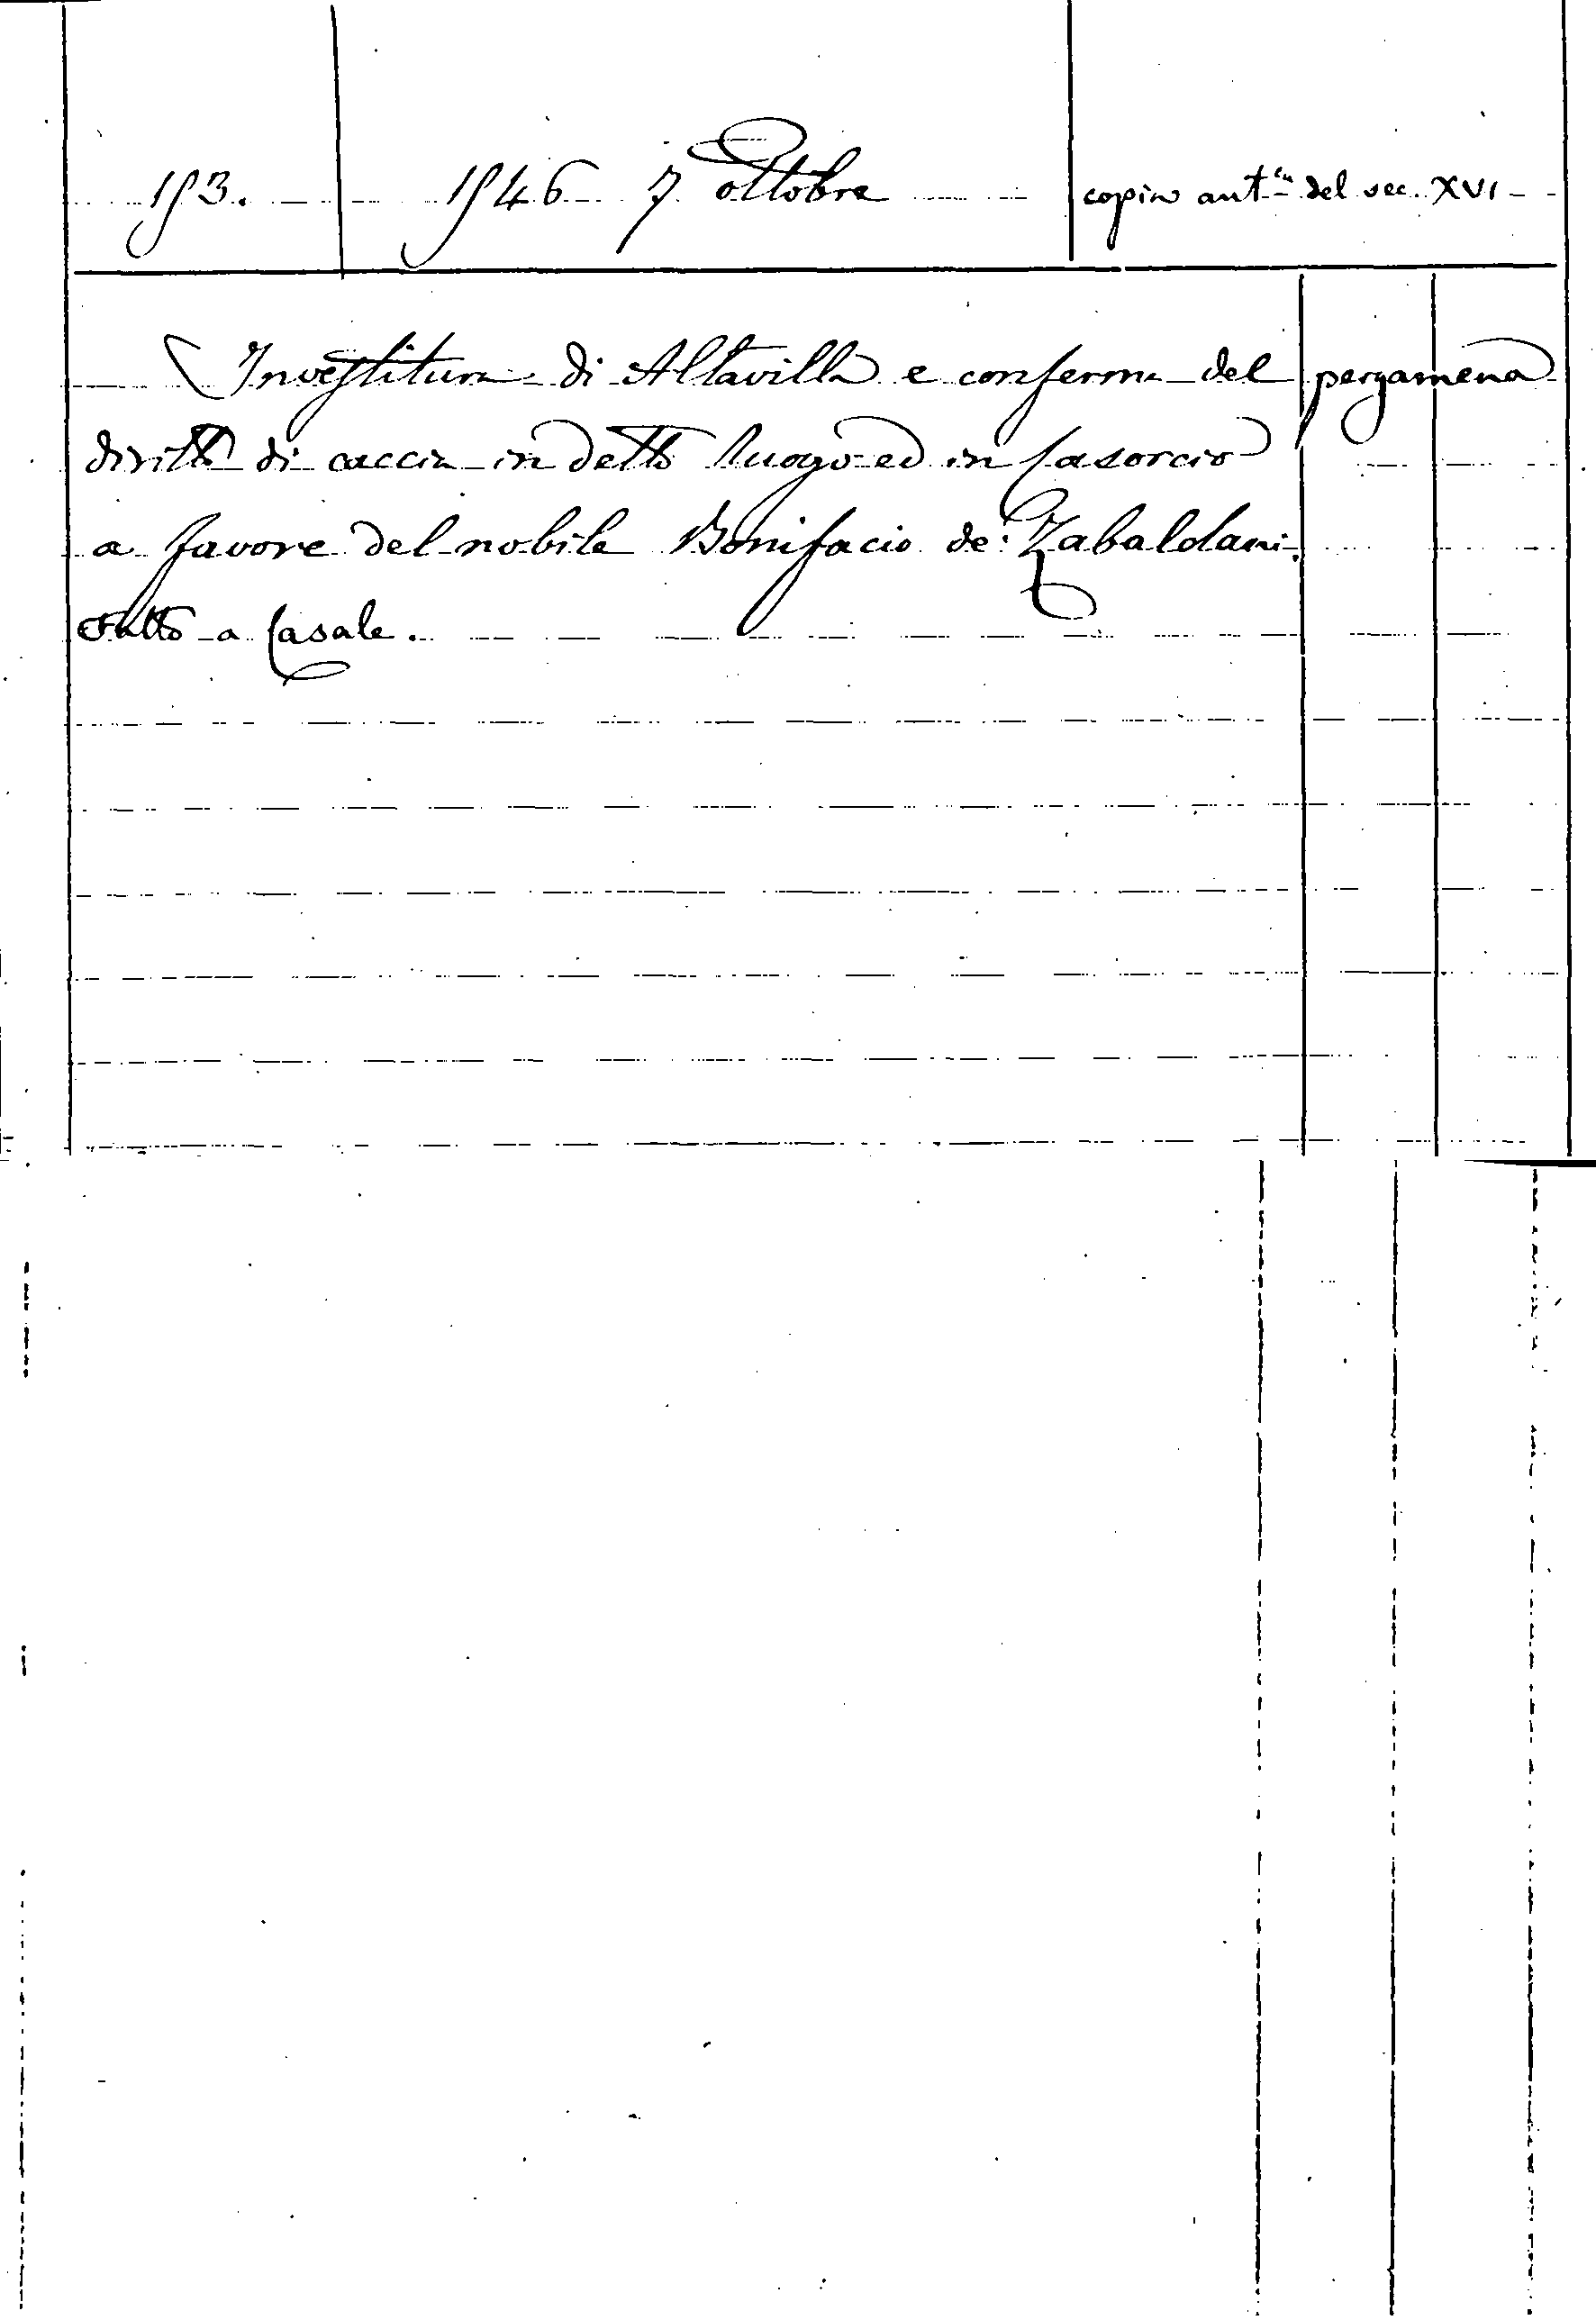 153. 1546 7 ottobre copia aut.ca del sec. XVI
Investitura di Altavilla e conferma del pergamena
diritto di caccia in detto luogo ed in Casorcio
a favore del nobile Bonifacio de' Zabaldani.
Fatto a Casale.